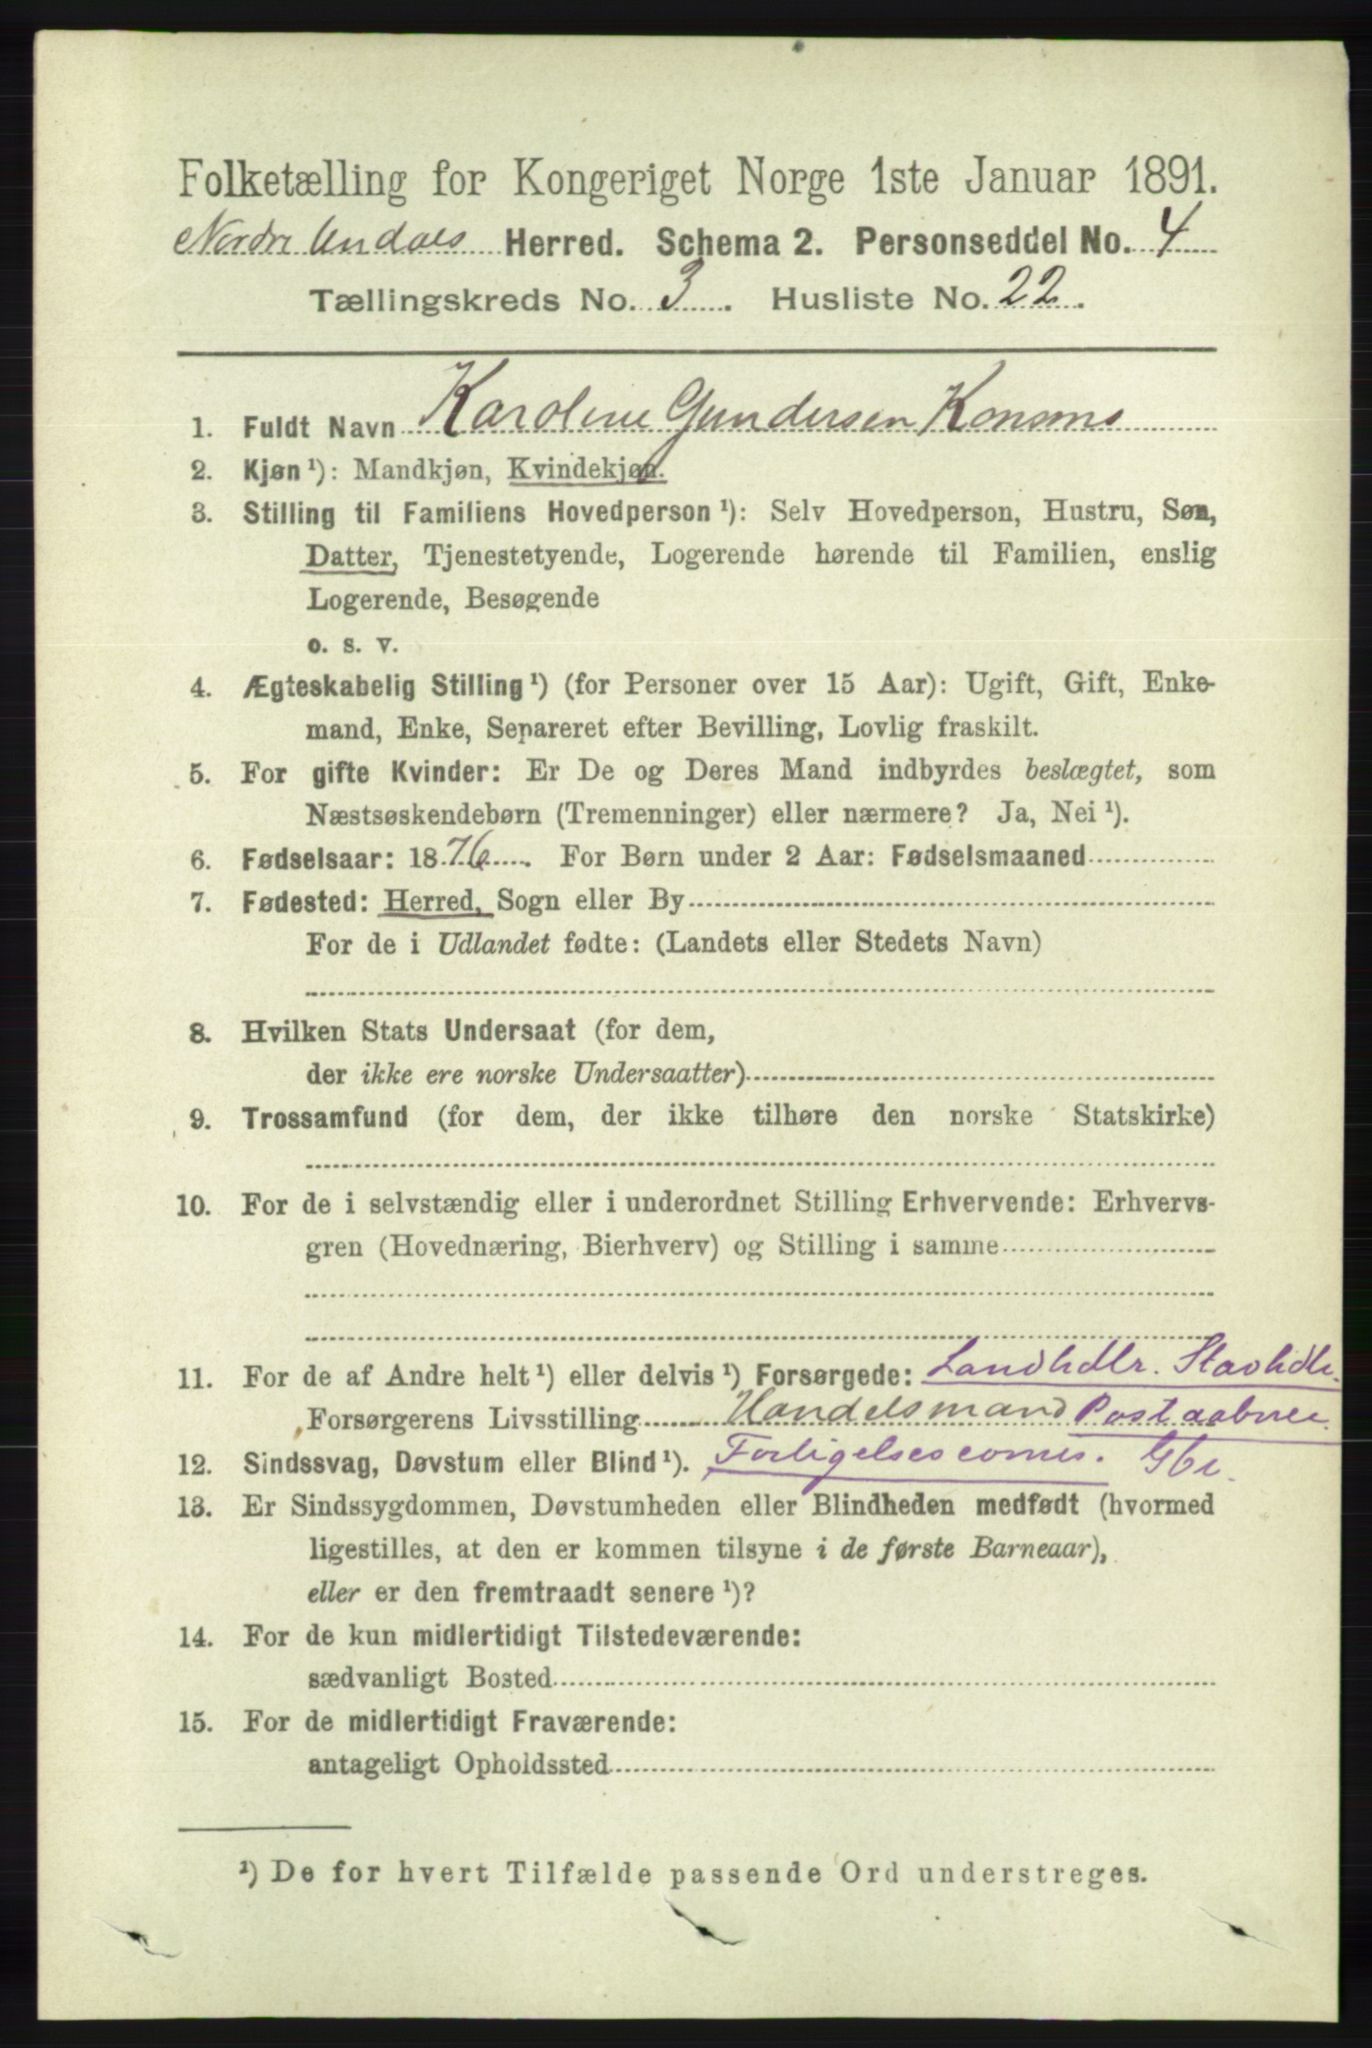 Folketælling for Kongeriget Norge 1ste Januar 1891.
Nordre Undals Herred. Schema 2. Personseddel No. 4
Tællingskreds No. 3. Husliste No. 22.
1. Fuldt Navn Karoline Gundersen Konsmo
2. Kjøn ¹): Mandkjøn, Kvindekjøn.
3. Stilling til Familiens Hovedperson ¹): Selv Hovedperson, Hustru, Søn,
Datter, Tjenestetyende, Logerende hørende til Familien, enslig
Logerende, Besøgende
o. s. v.
4. Ægteskabelig Stilling ¹) (for Personer over 15 Aar): Ugift, Gift, Enke-
mand, Enke, Separeret efter Bevilling, Lovlig fraskilt.
5. For gifte Kvinder: Er De og Deres Mand indbyrdes beslægtet, som
Næstsøskendebørn (Tremenninger) eller nærmere? Ja, Nei ¹).
6. Fødselsaar: 1876. For Børn under 2 Aar: Fødselsmaaned
7. Fødested: Herred, Sogn eller By
For de i Udlandet fødte: (Landets eller Stedets Navn)
8. Hvilken Stats Undersaat (for dem,
der ikke ere norske Undersaatter)
9. Trossamfund (for dem, der ikke tilhøre den norske Statskirke)
10. For de i selvstændig eller i underordnet Stilling Erhvervende: Erhvervs-
gren (Hovednæring, Bierhverv) og Stilling i samme
11. For de af Andre helt ¹) eller delvis ¹) Forsørgede: Landhdlr. Stavhdlr.
Forsørgerens Livsstilling Handelsmand Postaabner
12. Sindssvag, Døvstum eller Blind ¹). Forligelsescomis. Gbr.
13. Er Sindssygdommen, Døvstumheden eller Blindheden medfødt (hvormed
ligestilles, at den er kommen tilsyne i de første Barneaar),
eller er den fremtraadt senere ¹)?
14. For de kun midlertidigt Tilstedeværende:
sædvanligt Bosted
15. For de midlertidigt Fraværende:
antageligt Opholdssted
¹) De for hvert Tilfælde passende Ord understreges.